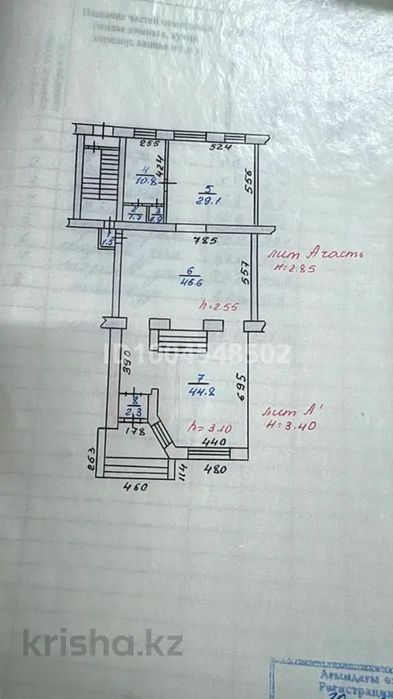 Название частей помещения
(жилая комната, кухня
коридор, ванная и т.п.)
255
524
4
10.8
424
5
29.1
556
2
1.7
3
1
1.5
785
6
46.6
557
лит А часть
H=2.85
h=2.55
ID1004548502
390
7
44.8
695
8
2.3
лит А'
H=3.40
178
h=3.10
440
263
114
480
460
krisha.kz
Ағымдағы
Регистрация